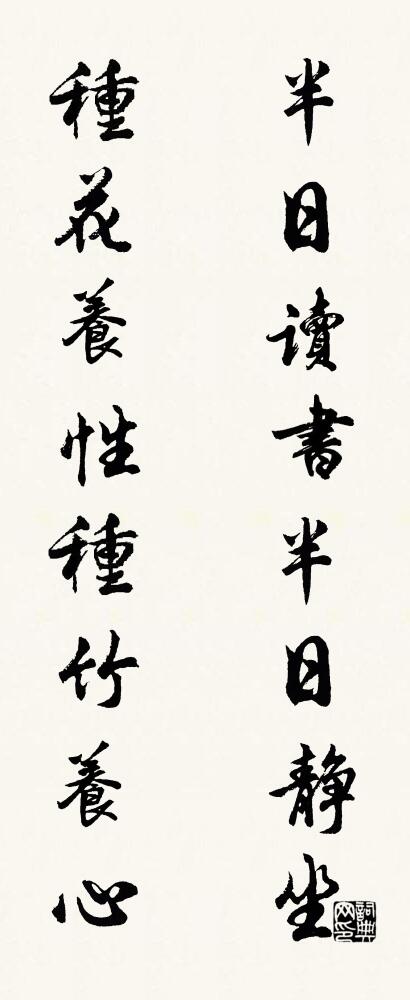 半日讀書半日静坐
種花養性種竹養心
詞典網印